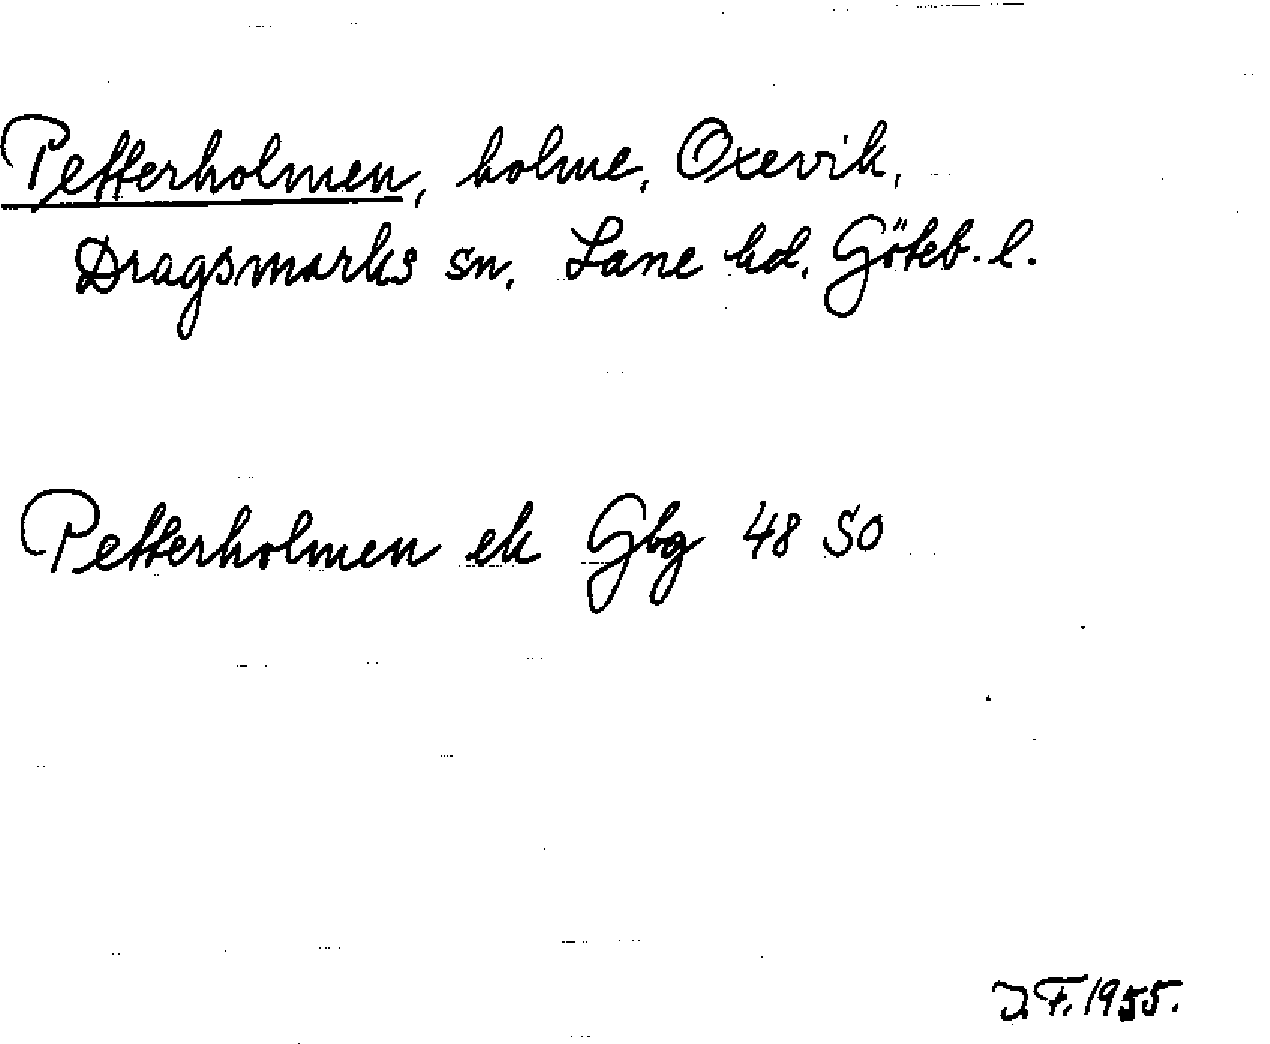 Petterholmen, holme, Oxevik,
Dragsmarks sn. Lane hd. Göteb. l.
Petterholmen ek Gbg 48 SO
J.F. 1955.